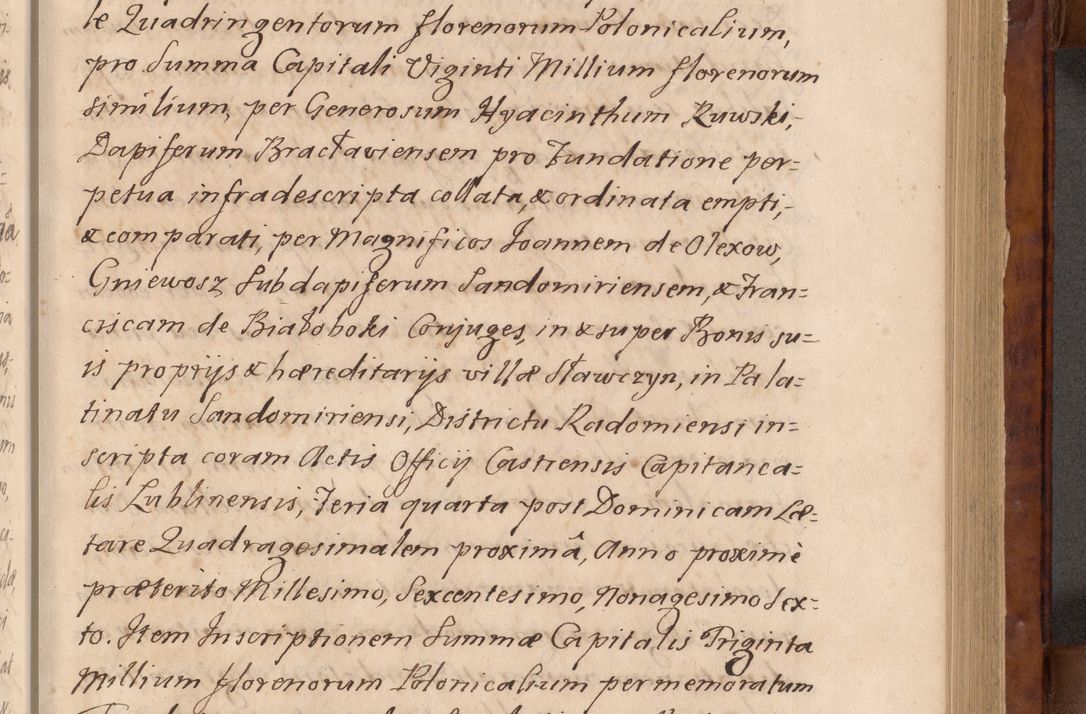 le Quadringentorum florenorum Polonicalium,
pro Summa Capitali Viginti Millium florenorum
similium, per Generosum Hyacinthum Ruwski,-
Dapiferum Bracłaviensem pro Fundatione per=
petua infradescripta collata, & ordinata empti,-
& comparati, per Magnificos Joannem de Olexow,
Gniewosz Subdapiferum Sandomiriensem, & Fran=
ciscam de Białoboki Conjuges, in & super Bonis su=
is proprijs & hæreditarijs villæ Sławczyn, in Pala=
tinatu Sandomiriensi, Districtu Radomiensi in=
scripta coram Actis Officij Castrensis Capitanea=
lis Lublinensis, Feria quarta post Dominicam Læ=
tare Quadragesimalem proximâ, Anno proximè
præterito Millesimo, Sexcentesimo, Nonagesimo Sex=
to. Item Inscriptionem Summæ Capitalis Triginta
Millium florenorum Polonicalium per memoratum